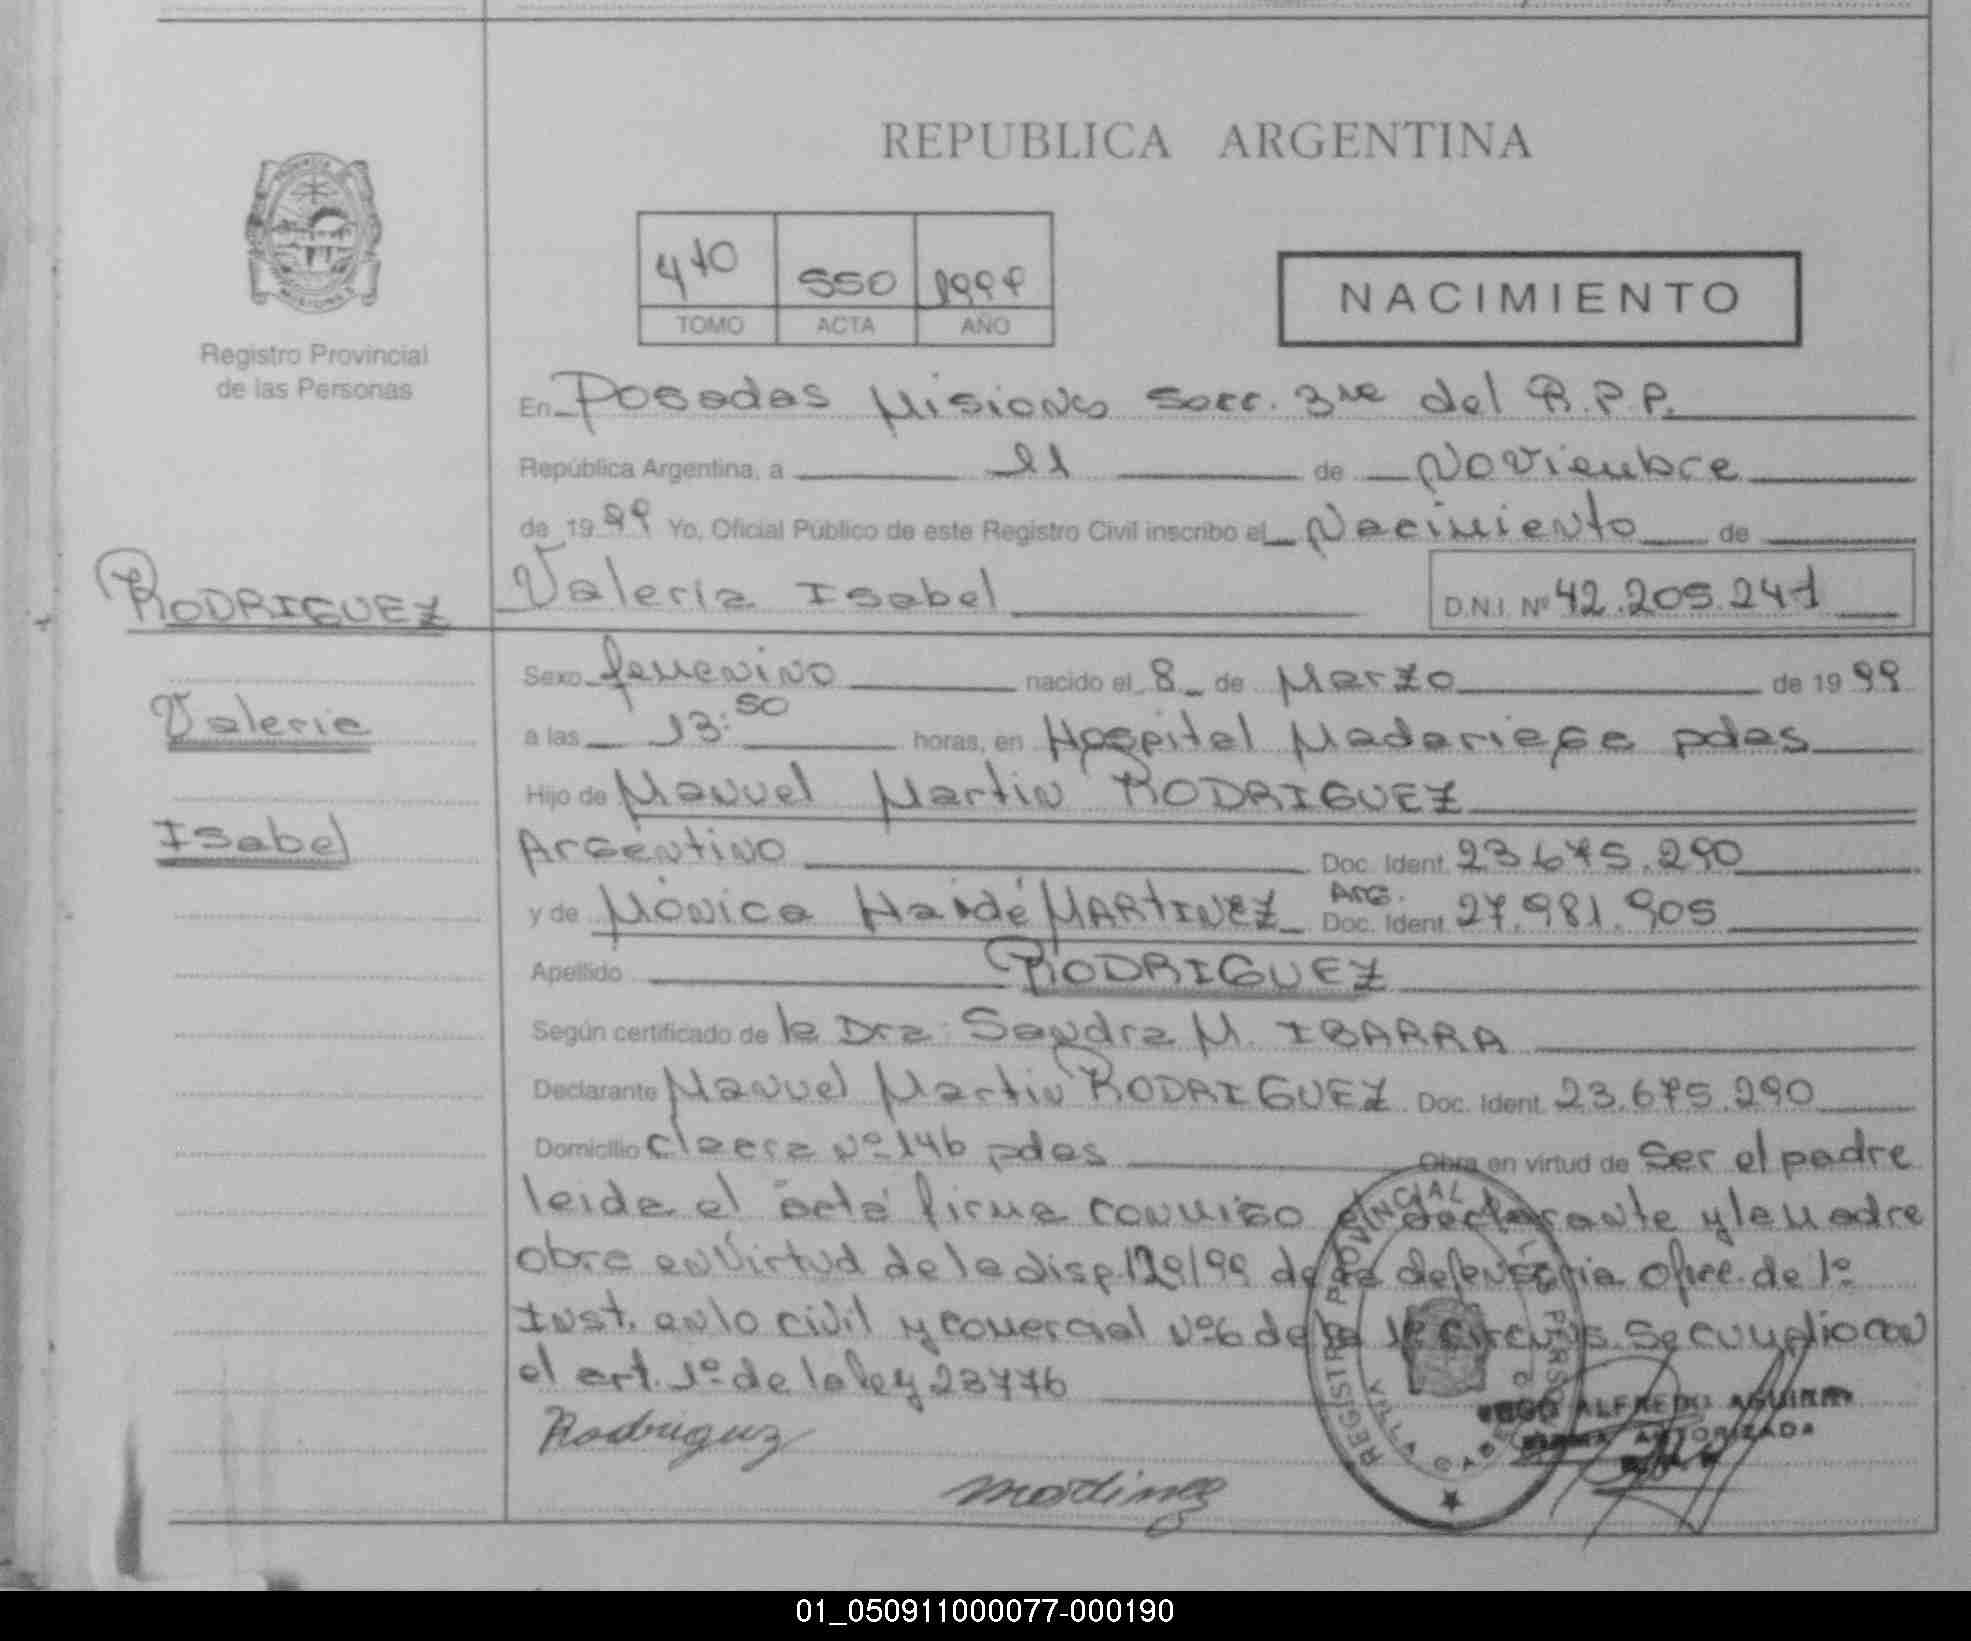 REPUBLICA ARGENTINA
Registro Provincial
de las Personas
550 1999
TOMO ACTA AÑO
NACIMIENTO
En Posadas Misiones Secc. 3ra del R.P.P.
República Argentina, a 11 de Noviembre
de 1999 Yo, Oficial Público de este Registro Civil inscribo el Nacimiento de
RODRIGUEZ
Valeria Isabel D.N.I. Nº 42.205.241
Valeria
Isabel
Sexo femenino nacido el 8 de Marzo de 1999
a las 13:50 horas, en Hospital Madariaga pdas
Hijo de Manuel Martin RODRIGUEZ
Argentino Doc. Ident. 23.675.290
y de Mónica Haidé MARTINEZ Arg. Doc. Ident. 27.981.905
Apellido RODRIGUEZ
Según certificado de la Dra. Sandra M. IBARRA
Declarante Manuel Martin RODRIGUEZ Doc. Ident. 23.675.290
Domicilio Nº 146 pdas Obra en virtud de Ser el padre
leida el acta firma conmigo el declarante y la madre
obra en Virtud de la disp. 129/99 de la defensoria Ofic. de 1º
Inst. en lo civil y comercial Nº 6 de la 1ª circuns. Se cumplio con
el art. 1º de la ley 23776
Rodriguez
Martinez
REGISTRO PROVINCIAL
ALFREDO AGUIRRE
FIRMA AUTORIZADA
01_050911000077-000190